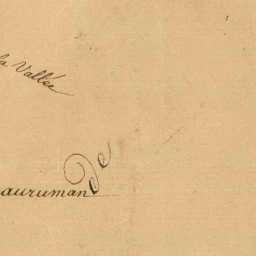 la Vallée
aurumande